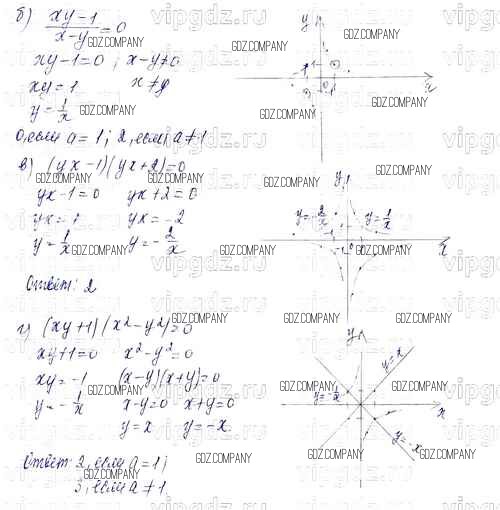 б) (xy-1)/(x-y)=0
xy-1=0; x-y≠0
xy=1 x≠y
y=1/x
0, если a=1; 2, если a≠1
y
x
в) (yx-1)(yx+2)=0
yx-1=0 yx+2=0
yx=1 yx=-2
y=1/x y=-2/x
Ответ: 2
y
y=-2/x y=1/x
x
г) (xy+1)(x²-y²)=0
xy+1=0 x²-y²=0
xy=-1 (x-y)(x+y)=0
y=-1/x x-y=0 x+y=0
y=x y=-x
Ответ: 2, если a=1;
3, если a≠1
y
y=x
y=-1/x
x
y=-x
vipgdz.ru
GDZ.COMPANY